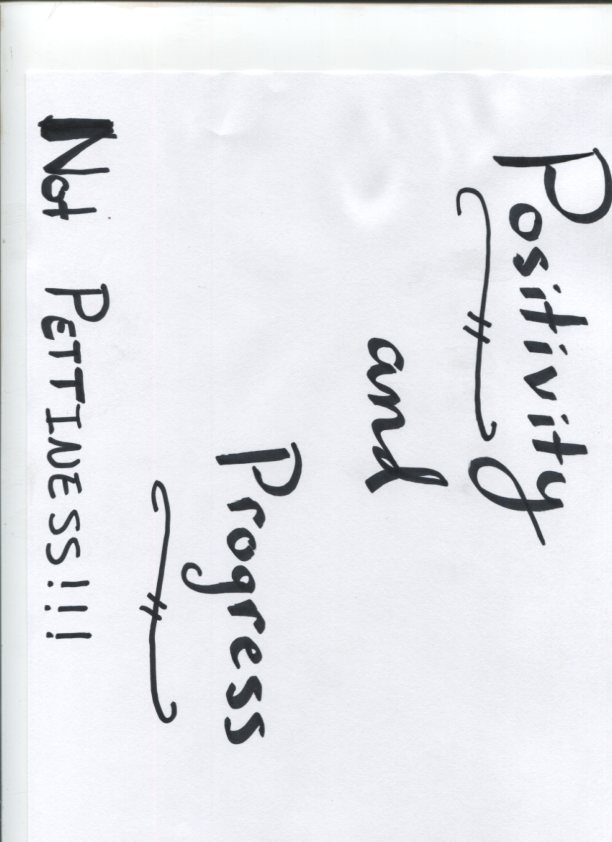 Positivity
and
Progress
Not PETTINESS!!!